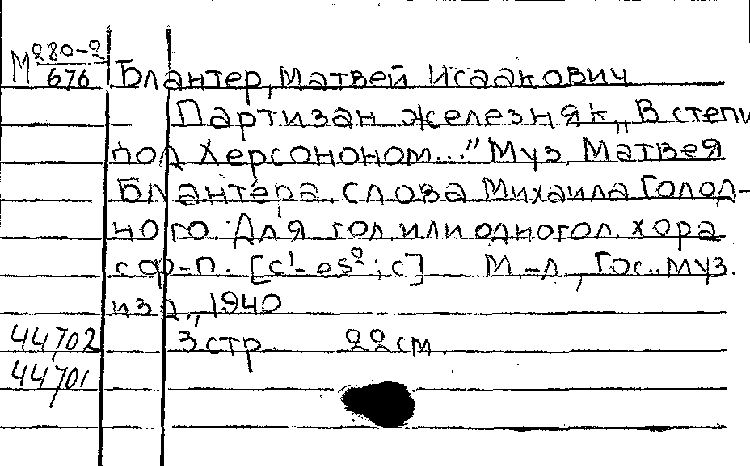 М 280-2/676 Блантер, Матвей Исаакович
Партизан железняк „В степи
под Херсононом..." Муз. Матвея
Блантера. Слова Михаила Голод-
ного. Для гол. или одногол. хора
с ф-п. [c¹-es²; c] М.-Л., Гос. муз.
изд., 1940
44702 3 стр 22 см.
44701